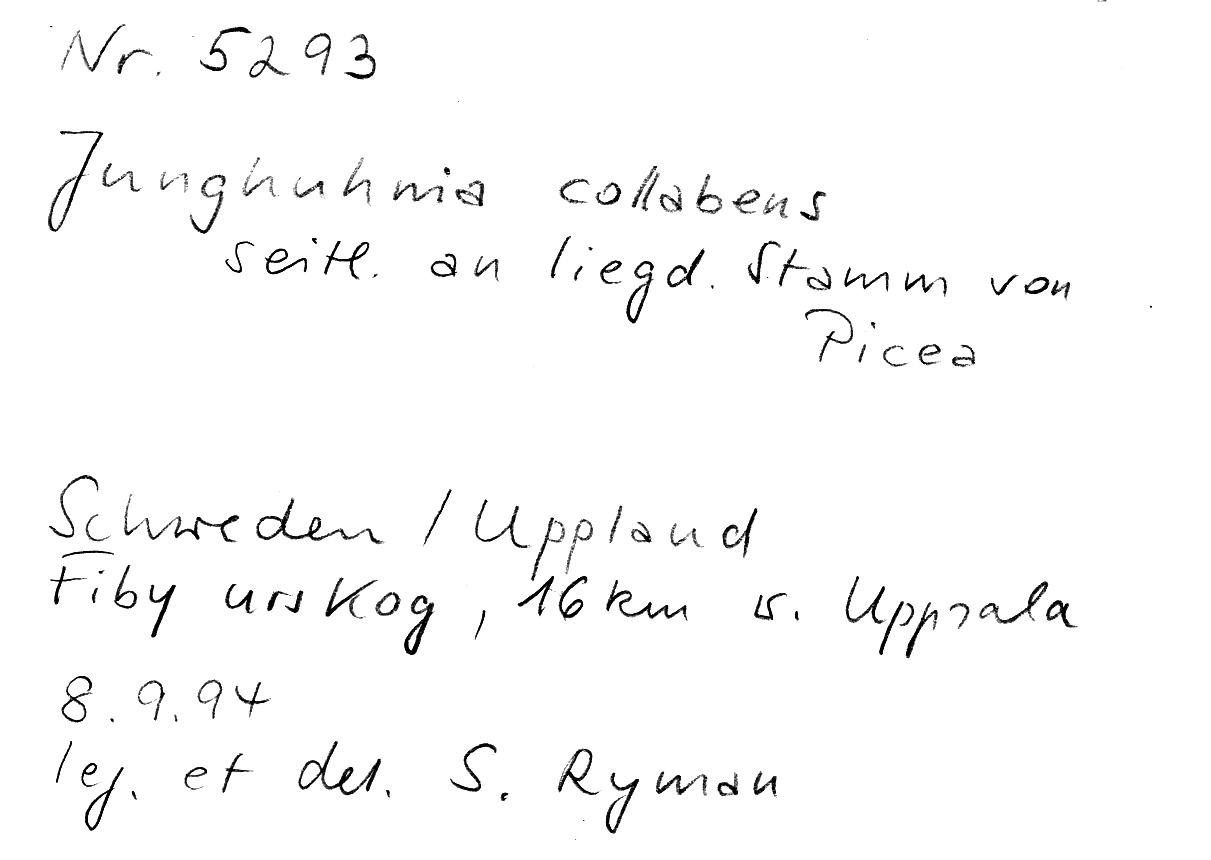 Nr. 5293
Junghuhnia collabens
seitl. an liegd. Stamm von
Picea
Schweden / Uppland
Fiby urskog, 16 km v. Uppsala
8.9.94
leg. et det. S. Ryman